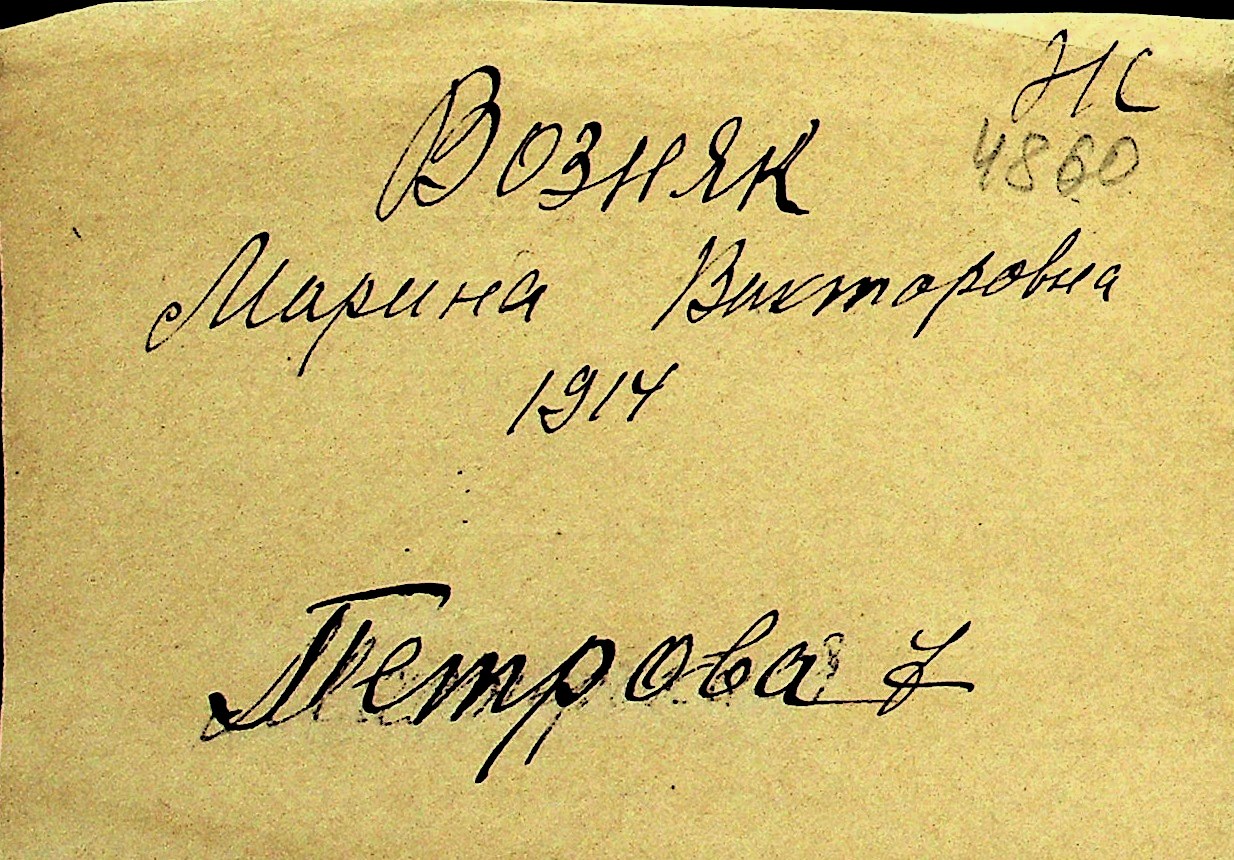 НС
4860
Возняк
Марина Викторовна
1914
Петрова